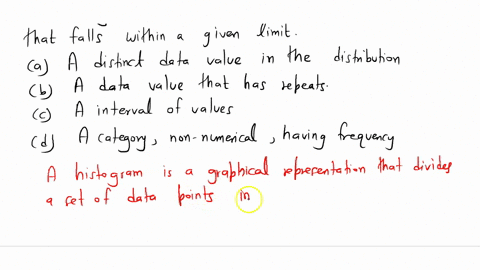 that falls within a given limit.
(a) A distinct data value in the distribution
(b) A data value that has repeats.
(c) A interval of values
(d) A category, non-numerical, having frequency
A histogram is a graphical representation that divides
a set of data points in